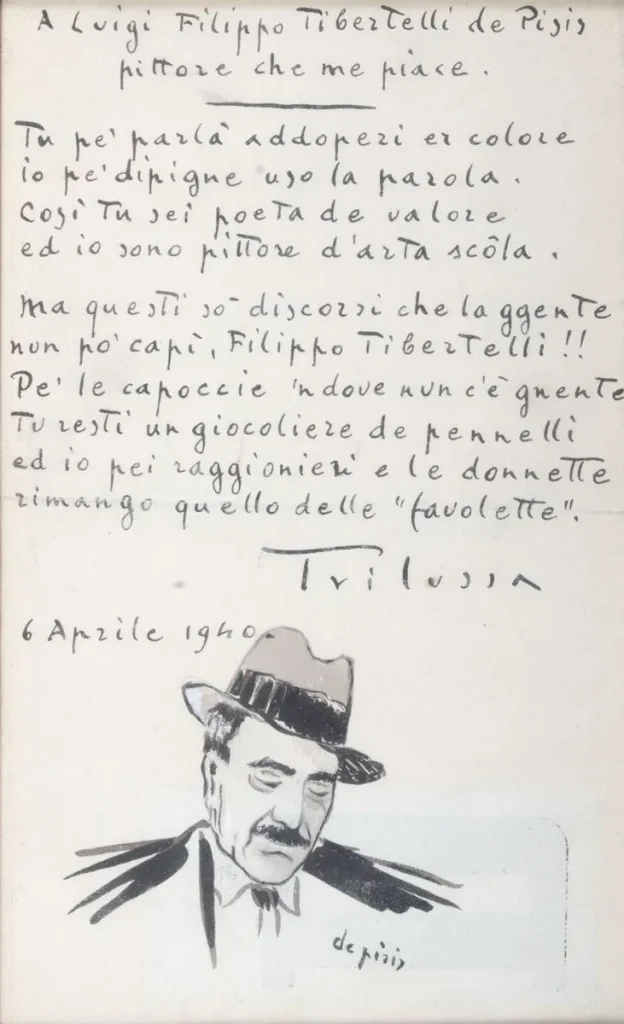 A Luigi Filippo Tibertelli de Pisis
pittore che me piace.
Tu pe' parlà addoperi er colore
io pe' dipigne uso la parola.
Così tu sei poeta de valore
ed io sono pittore d'arta scôla.
Ma questi so' discorsi che la ggente
nun po' capì, Filippo Tibertelli!!
Pe' le capoccie 'ndove nun c'è gnente
Tu resti un giocoliere de pennelli
ed io pei raggionieri e le donnette
rimango quello delle "favolette".
Trilussa
6 Aprile 1940
de pisis